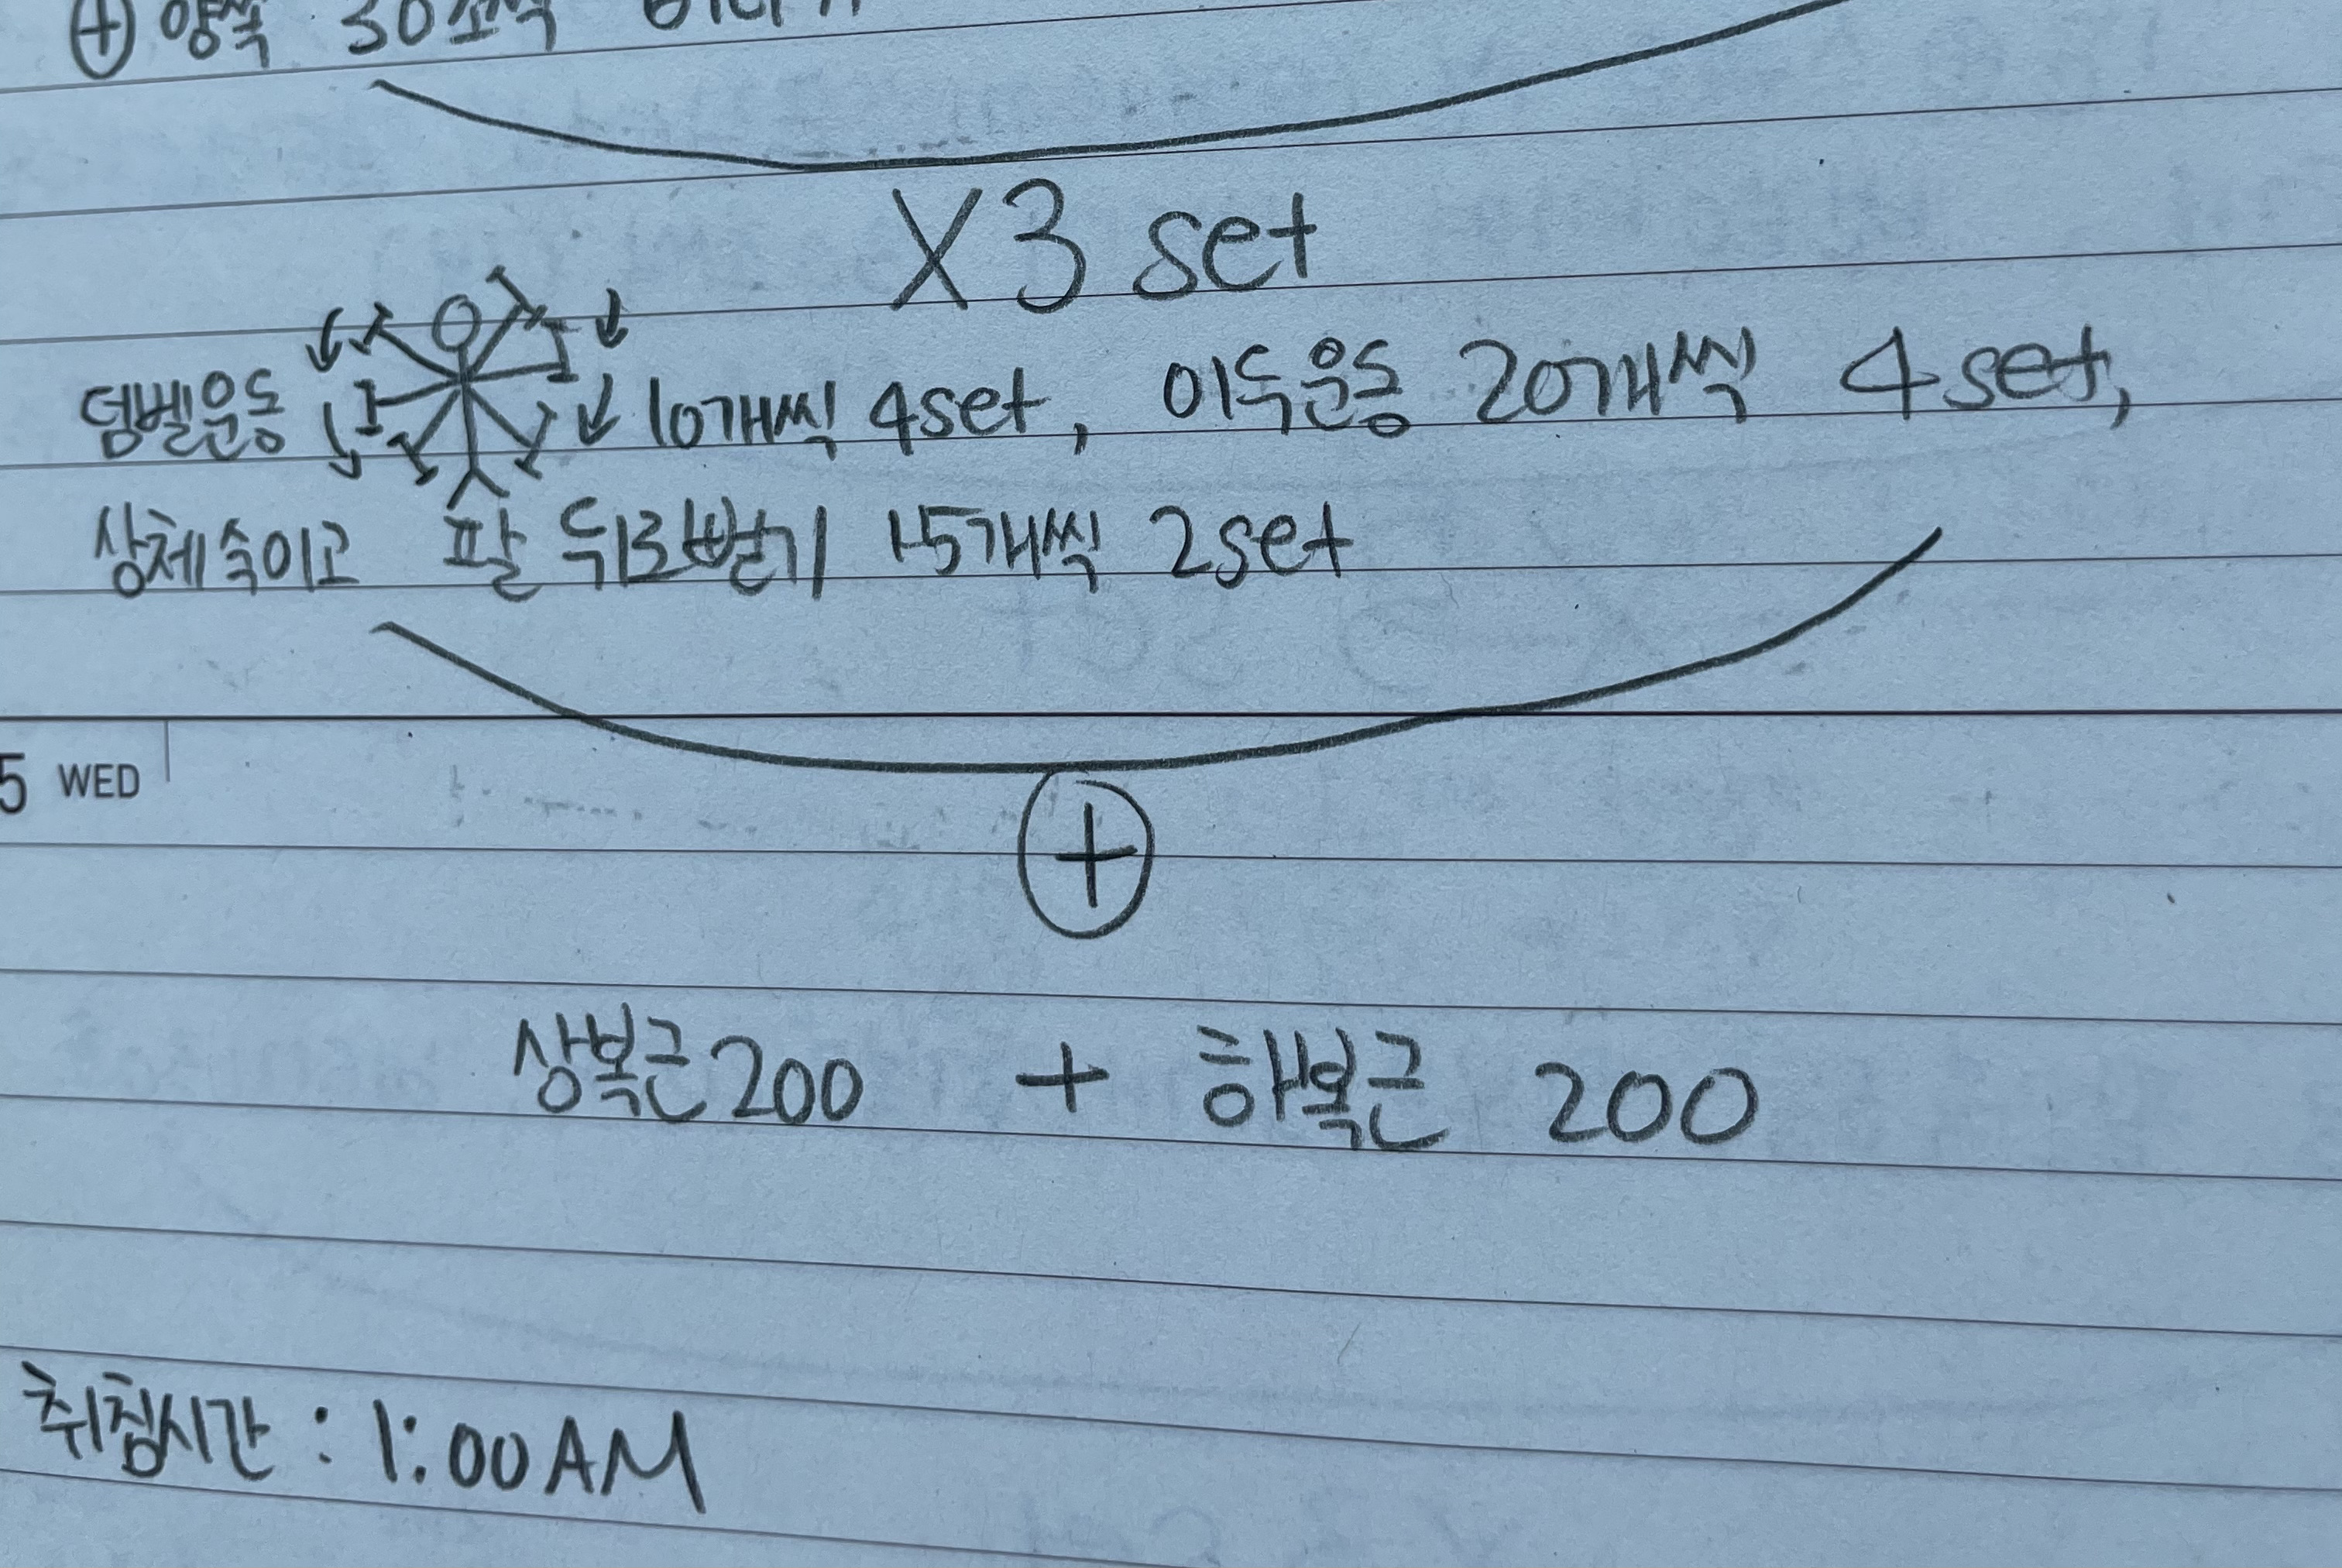 ⊕ 양쪽 30초씩
X3 set
덤벨운동 10개씩 4set, 이두운동 20개씩 4set,
상체숙이고 팔 뒤로뻗기 15개씩 2set
5 WED
⊕
상복근200 + 하복근 200
취침시간 : 1:00AM